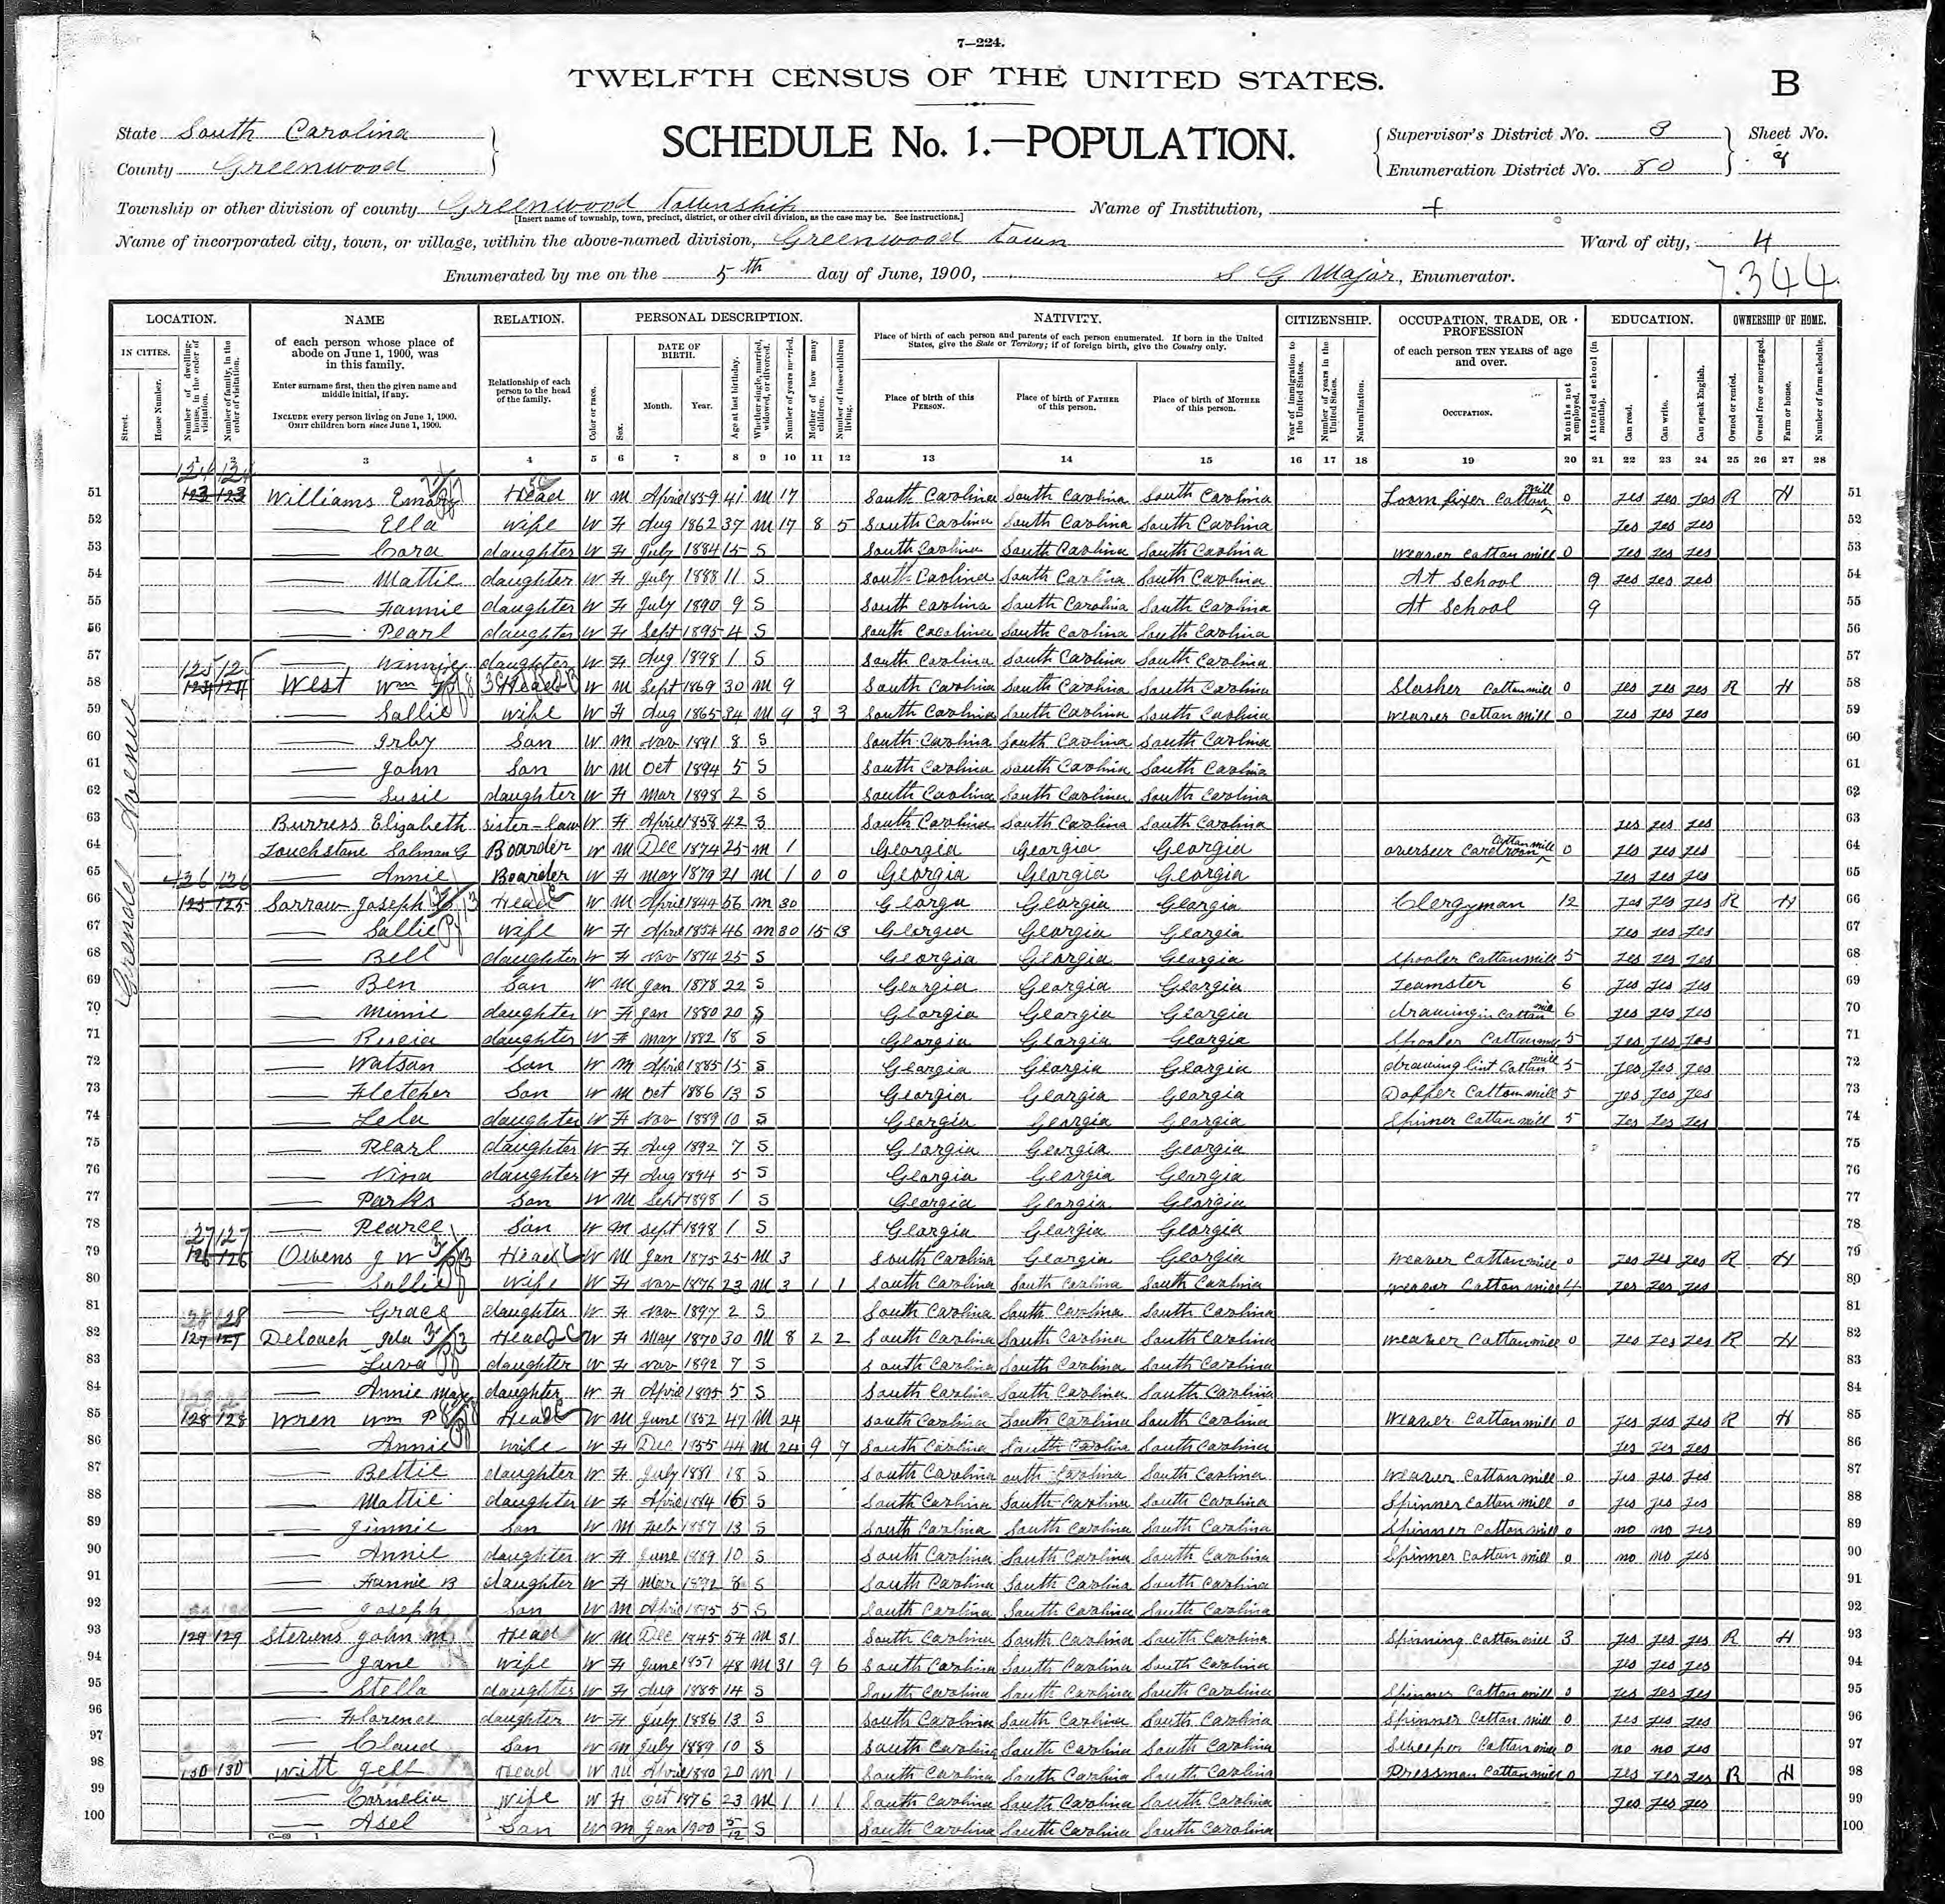 7—224.
TWELFTH CENSUS OF THE UNITED STATES.
B
State South Carolina
County Greenwood
SCHEDULE No. 1.—POPULATION.
Supervisor's District No. 3
Enumeration District No. 80
Sheet No.
8
Township or other division of county Greenwood Township
[Insert name of township, town, precinct, district, or other civil division, as the case may be. See instructions.]
Name of Institution,
Name of incorporated city, town, or village, within the above-named division, Greenwood Town
Ward of city, 4
Enumerated by me on the 5th day of June, 1900, S G Major, Enumerator.
7344
LOCATION. NAME RELATION. PERSONAL DESCRIPTION. NATIVITY. CITIZENSHIP. OCCUPATION, TRADE, OR PROFESSION EDUCATION. OWNERSHIP OF HOME.
IN CITIES.
Street.
House Number.
Number of dwelling-house, in the order of visitation.
Number of family, in the order of visitation.
of each person whose place of abode on June 1, 1900, was in this family.
Enter surname first, then the given name and middle initial, if any.
INCLUDE every person living on June 1, 1900.
OMIT children born since June 1, 1900.
Relationship of each person to the head of the family.
Color or race.
Sex.
DATE OF BIRTH.
Month. Year.
Age at last birthday.
Whether single, married, widowed, or divorced.
Number of years married.
Mother of how many children.
Number of these children living.
Place of birth of each person and parents of each person enumerated. If born in the United States, give the State or Territory; if of foreign birth, give the Country only.
Place of birth of this PERSON.
Place of birth of FATHER of this person.
Place of birth of MOTHER of this person.
Year of immigration to the United States.
Number of years in the United States.
Naturalization.
of each person TEN YEARS of age and over.
OCCUPATION.
Months not employed.
Attended school (in months).
Can read.
Can write.
Can speak English.
Owned or rented.
Owned free or mortgaged.
Farm or house.
Number of farm schedule.
1 2 3 4 5 6 7 8 9 10 11 12 13 14 15 16 17 18 19 20 21 22 23 24 25 26 27 28
Grendel Avenue
124 124
51 123 123 Williams Head W M April 1859 41 M 17 South Carolina South Carolina South Carolina Loom fixer Cotton mill 0 yes yes yes R H 51
52 — Ella wife W F Aug 1862 37 M 17 8 5 South Carolina South Carolina South Carolina yes yes yes 52
53 — Cora daughter W F July 1884 15 S South Carolina South Carolina South Carolina weaver Cotton mill 0 yes yes yes 53
54 — Mattie daughter W F July 1888 11 S South Carolina South Carolina South Carolina At School 9 yes yes yes 54
55 — Fannie daughter W F July 1890 9 S South Carolina South Carolina South Carolina At School 9 55
56 — Pearl daughter W F Sept 1895 4 S South Carolina South Carolina South Carolina 56
57 — Winnie daughter W F Aug 1898 1 S South Carolina South Carolina South Carolina 57
125 125
58 124 124 West Wm Head W M Sept 1869 30 M 9 South Carolina South Carolina South Carolina Slasher Cotton mill 0 yes yes yes R H 58
59 — Sallie wife W F Aug 1865 34 M 9 3 3 South Carolina South Carolina South Carolina weaver Cotton mill 0 yes yes yes 59
60 — Irby Son W M Nov 1891 8 S South Carolina South Carolina South Carolina 60
61 — John Son W M Oct 1894 5 S South Carolina South Carolina South Carolina 61
62 — Susie daughter W F Mar 1898 2 S South Carolina South Carolina South Carolina 62
63 Burress Elizabeth sister-law W F April 1858 42 S South Carolina South Carolina South Carolina yes yes yes 63
64 Touchstone Solman G Boarder W M Dec 1874 25 M 1 Georgia Georgia Georgia overseer Card room Cotton mill 0 yes yes yes 64
65 — Annie Boarder W F May 1879 21 M 1 0 0 Georgia Georgia Georgia yes yes yes 65
126 126
66 125 125 Sorrow Joseph Head W M April 1844 56 M 30 Georgia Georgia Georgia Clergyman 12 yes yes yes R H 66
67 — Sallie wife W F April 1854 46 M 30 15 13 Georgia Georgia Georgia yes yes yes 67
68 — Bell daughter W F Nov 1874 25 S Georgia Georgia Georgia Spooler Cotton mill 5 yes yes yes 68
69 — Ben Son W M Jan 1878 22 S Georgia Georgia Georgia Teamster 6 yes yes yes 69
70 — Minnie daughter W F Jan 1880 20 S Georgia Georgia Georgia drawing in Cotton mill 6 yes yes yes 70
71 — daughter W F May 1882 18 S Georgia Georgia Georgia Spooler Cotton mill 5 yes yes yes 71
72 — Watson Son W M April 1885 15 S Georgia Georgia Georgia drawing lint Cotton mill 5 yes yes yes 72
73 — Fletcher Son W M Oct 1886 13 S Georgia Georgia Georgia Doffer Cotton mill 5 yes yes yes 73
74 — Lela daughter W F Nov 1889 10 S Georgia Georgia Georgia Spinner Cotton mill 5 yes yes yes 74
75 — Pearl daughter W F Aug 1892 7 S Georgia Georgia Georgia 75
76 — Vina daughter W F Aug 1894 5 S Georgia Georgia Georgia 76
77 — Parks Son W M Sept 1898 1 S Georgia Georgia Georgia 77
78 — Pearce Son W M Sept 1898 1 S Georgia Georgia Georgia 78
127 127
79 126 126 Owens J W Head W M Jan 1875 25 M 3 South Carolina Georgia Georgia weaver Cotton mill 0 yes yes yes R H 79
80 — Sallie Wife W F Nov 1876 23 M 3 1 1 South Carolina South Carolina South Carolina weaver Cotton mill 4 yes yes yes 80
81 — Grace daughter W F Nov 1897 2 S South Carolina South Carolina South Carolina 81
128 128
82 127 127 Deloach Ida Head W F May 1870 30 M 8 2 2 South Carolina South Carolina South Carolina weaver Cotton mill 0 yes yes yes R H 82
83 — Luva daughter W F Nov 1892 7 S South Carolina South Carolina South Carolina 83
84 — Annie May daughter W F April 1895 5 S South Carolina South Carolina South Carolina 84
85 128 128 Wren Wm P Head W M June 1852 47 M 24 South Carolina South Carolina South Carolina Weaver Cotton mill 0 yes yes yes R H 85
86 — Annie wife W F Dec 1855 44 M 24 9 7 South Carolina South Carolina South Carolina yes yes yes 86
87 — Bettie daughter W F July 1881 18 S South Carolina South Carolina South Carolina weaver Cotton mill 0 yes yes yes 87
88 — Mattie daughter W F April 1884 16 S South Carolina South Carolina South Carolina Spinner Cotton mill 0 yes yes yes 88
89 — Jimmie Son W M Feb 1887 13 S South Carolina South Carolina South Carolina Spinner Cotton mill 0 no no yes 89
90 — Annie daughter W F June 1889 10 S South Carolina South Carolina South Carolina Spinner Cotton mill 0 no no yes 90
91 — Fannie B daughter W F Mar 1892 8 S South Carolina South Carolina South Carolina 91
92 — Joseph Son W M April 1895 5 S South Carolina South Carolina South Carolina 92
93 129 129 Stevens John M Head W M Dec 1845 54 M 31 South Carolina South Carolina South Carolina Spinning Cotton mill 3 yes yes yes R H 93
94 — Jane wife W F June 1851 48 M 31 9 6 South Carolina South Carolina South Carolina yes yes yes 94
95 — Stella daughter W F Aug 1885 14 S South Carolina South Carolina South Carolina Spinner Cotton mill 0 yes yes yes 95
96 — Florence daughter W F July 1886 13 S South Carolina South Carolina South Carolina Spinner Cotton mill 0 yes yes yes 96
97 — Claud Son W M July 1889 10 S South Carolina South Carolina South Carolina Sweeper Cotton mill 0 no no yes 97
98 130 130 Witt Head W M April 1880 20 M 1 South Carolina South Carolina South Carolina Pressman Cotton mill 0 yes yes yes R H 98
99 — Cornelia wife W F Oct 1876 23 M 1 1 1 South Carolina South Carolina South Carolina yes yes yes 99
100 — Asel Son W M Jan 1900 5/12 S South Carolina South Carolina South Carolina 100
C—69 1